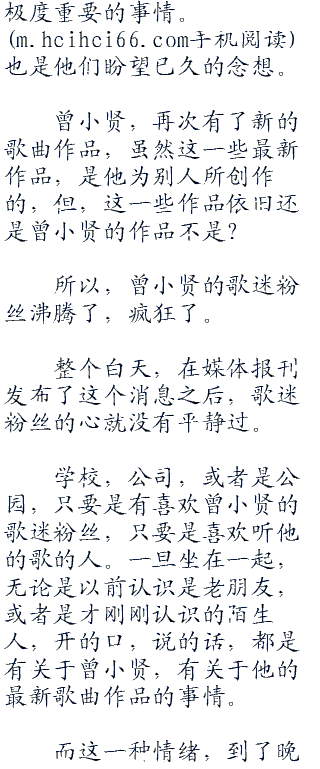 极度重要的事情。
(m.hcihci66.com手机阅读)
也是他们盼望已久的念想。
曾小贤，再次有了新的
歌曲作品，虽然这一些最新
作品，是他为别人所创作
的，但，这一些作品依旧还
是曾小贤的作品不是？
所以，曾小贤的歌迷粉
丝沸腾了，疯狂了。
整个白天，在媒体报刊
发布了这个消息之后，歌迷
粉丝的心就没有平静过。
学校，公司，或者是公
园，只要是有喜欢曾小贤的
歌迷粉丝，只要是喜欢听他
的歌的人。一旦坐在一起，
无论是以前认识是老朋友，
或者是才刚刚认识的陌生
人，开的口，说的话，都是
有关于曾小贤，有关于他的
最新歌曲作品的事情。
而这一种情绪，到了晚